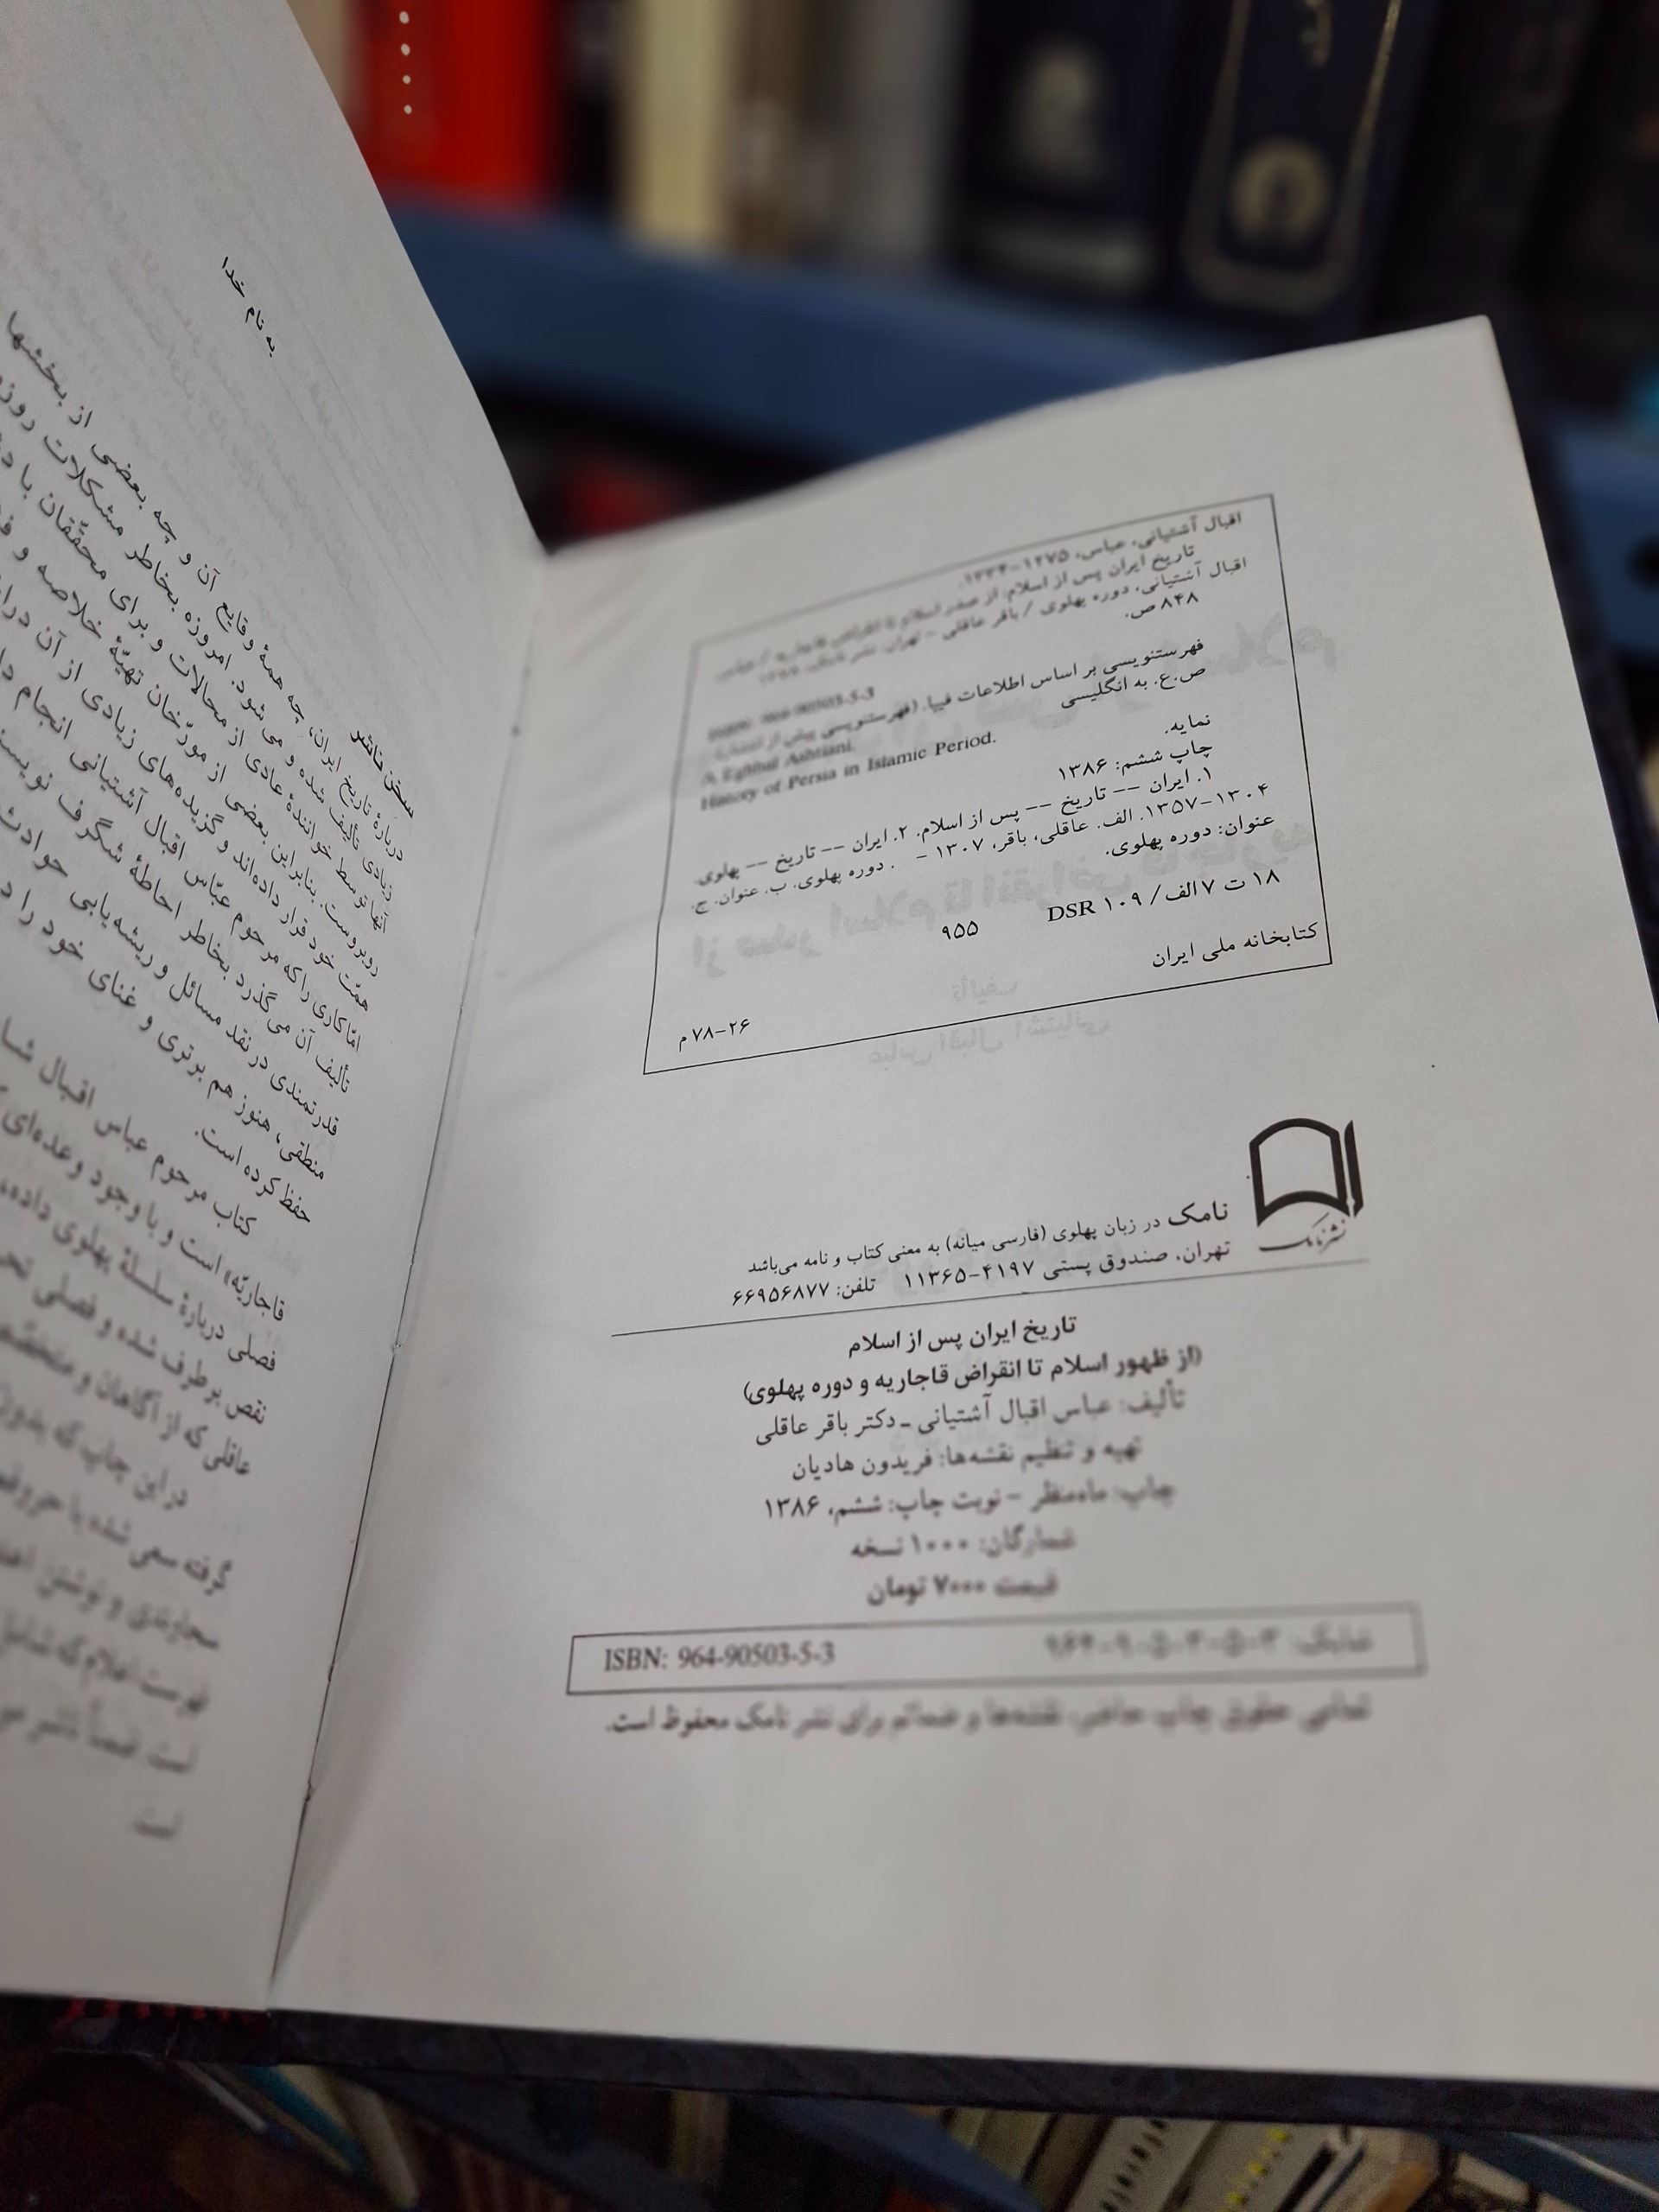 اقبال آشتیانی، عباس، ۱۲۷۵-۱۳۳۴.
تاریخ ایران پس از اسلام: از صدر اسلام تا انقراض قاجاریه / عباس
اقبال آشتیانی، دوره پهلوی / باقر عاقلی - تهران: نشر نامک،
۸۴۸ ص.
ISBN: 964-90503-5-3
فهرستنویسی بر اساس اطلاعات فیپا. (فهرستنویسی پیش از انتشار)
ص.ع. به انگلیسی
A. Eghbal Ashtiani.
History of Persia in Islamic Period.
نمایه.
چاپ ششم: ۱۳۸۶
۱. ایران -- تاریخ -- پس از اسلام. ۲. ایران -- تاریخ -- پهلوی.
۱۳۰۴-۱۳۵۷. الف. عاقلی، باقر، ۱۳۰۷ - . دوره پهلوی. ب. عنوان. ج.
عنوان: دوره پهلوی.
۱۸ ت ۷ الف / ۱۰۹ DSR
۹۵۵
کتابخانه ملی ایران
۲۶-۷۸ م
نشر نامک
نامک در زبان پهلوی (فارسی میانه) به معنی کتاب و نامه می‌باشد
تهران، صندوق پستی ۴۱۹۷-۱۱۳۶۵ تلفن: ۶۶۹۵۶۸۷۷
تاریخ ایران پس از اسلام
(از ظهور اسلام تا انقراض قاجاریه و دوره پهلوی)
تألیف: عباس اقبال آشتیانی ـ دکتر باقر عاقلی
تهیه و تنظیم نقشه‌ها: فریدون هادیان
چاپ: ماه‌منظر - نوبت چاپ: ششم، ۱۳۸۶
شمارگان: ۱۰۰۰ نسخه
قیمت ۷۰۰۰ تومان
شابک: ۳-۵-۹۰۵۰۳-۹۶۴ ISBN: 964-90503-5-3
تمامی حقوق چاپ حاضر، نقشه‌ها و ضمائم برای نشر نامک محفوظ است.
به نام خدا
سخن ناشر
دربارهٔ تاریخ ایران، چه همهٔ وقایع آن و چه بعضی از بخشها
زیادی تألیف شده و می شود. امروزه بخاطر مشکلات
آنها توسط خوانندهٔ عادی از محالات و برای محقّقان با
روبروست. بنابراین بعضی از مورّخان تهیّهٔ خلاصه و
همّت خود قرار داده‌اند و گزیده‌های زیادی از آن
امّا کاری را که مرحوم عبّاس اقبال آشتیانی انجام
تألیف آن می گذرد بخاطر احاطهٔ شگرف
قدرتمندی در نقد مسائل و ریشه یابی حوادث
منطقی، هنوز هم برتری و غنای خود را
حفظ کرده است.
کتاب مرحوم عباس اقبال
قاجاریّه» است و با وجود
فصلی دربارهٔ سلسلهٔ پهلوی داده،
نقص برطرف شده و فصلی
عاقلی که از آگاهان و
در این چاپ که بدون
گرفته سعی شده با
سجاوندی و نوشتن
فهرست اعلام که شامل
است. ضمناً ناشر
است